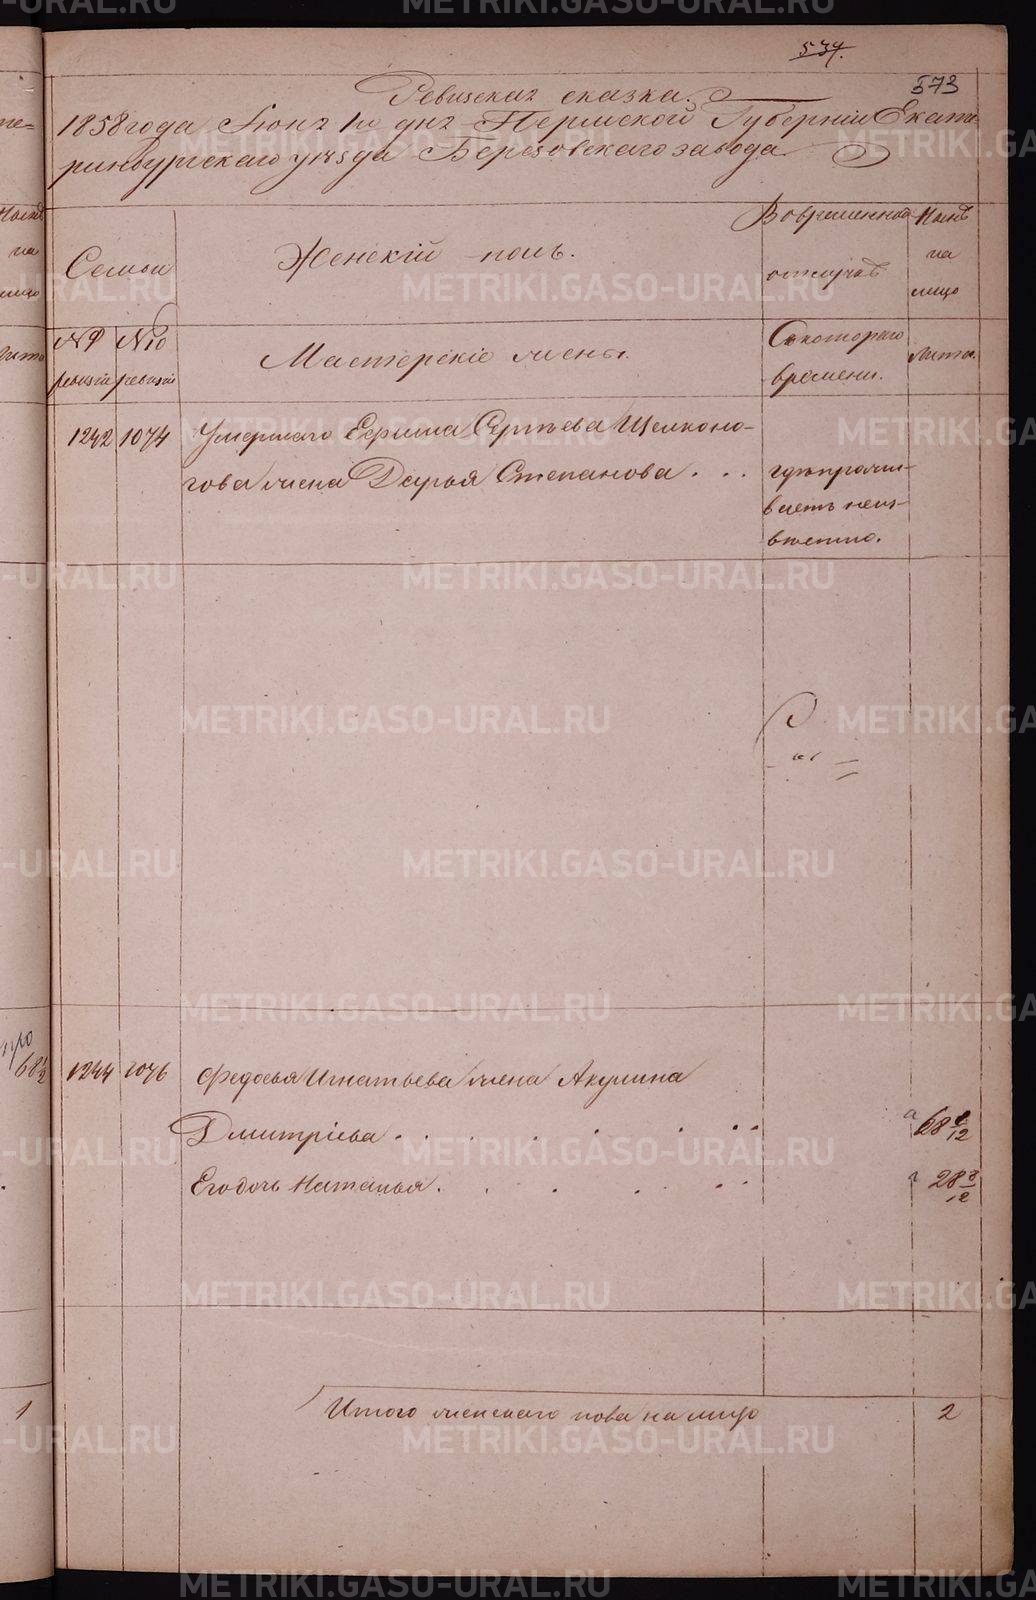 534.
573
Ревизская сказка.
1858 года Іюня 1го дня Пермской Губерніи Екате-
ринбургскаго уѣзда Березовскаго завода
Семьи
Женскій полъ.
Во временной
отлучкѣ
Нынѣ
на
лицо
№ 9
ревизіи
№ 10
ревизіи
Мастерскіе жены.
Съ котораго
времени.
Лѣта.
1242 1074 Умершаго Ефима Сергѣева Щелконо-
гова жена Дарья Степанова . . .
гдѣ прожи-
ваетъ неиз-
вѣстно.
1244 1076 Федосья Игнатьева жена Акулина
Дмитріева . . . . . . .
68
12
Его дочь Наталья . . . . . .
28 3/12
Итого женскаго пола на лицо 2
1
METRIKI.GASO-URAL.RU